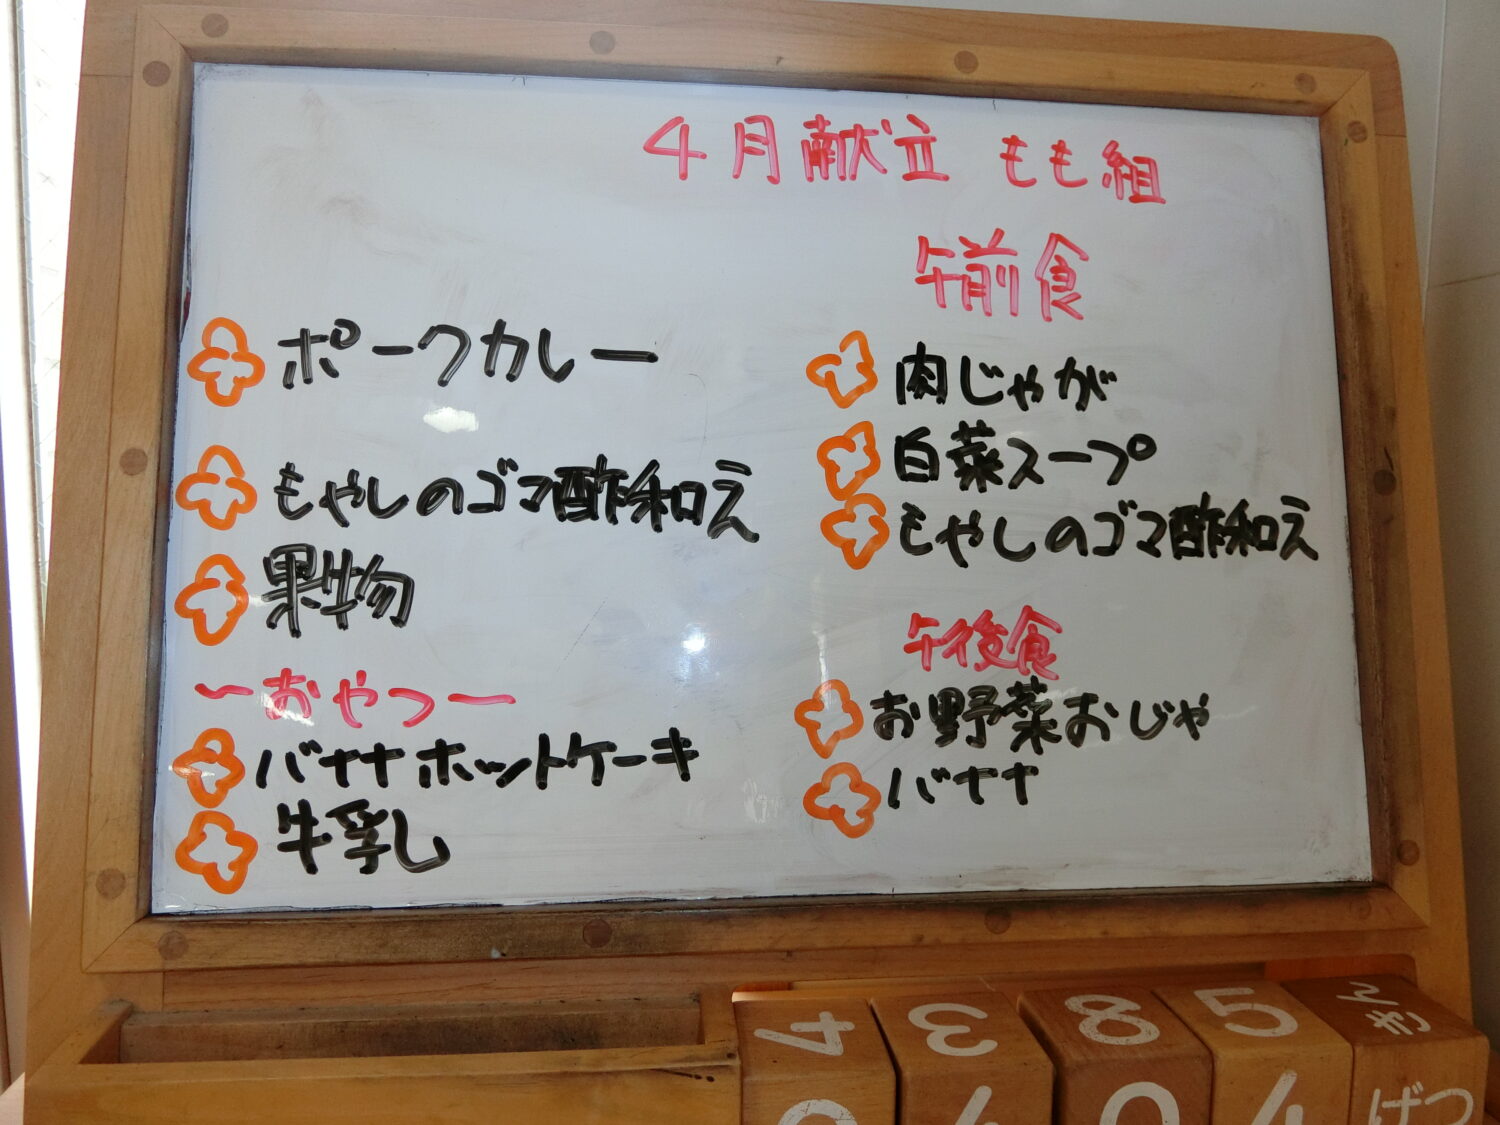 4月献立 もも組
ポークカレー
もやしのゴマ酢和え
果物
〜おやつー
バナナホットケーキ
牛乳
午前食
肉じゃが
白菜スープ
もやしのゴマ酢和え
午後食
お野菜おじや
バナナ
4 3 8 5 きん
げつ